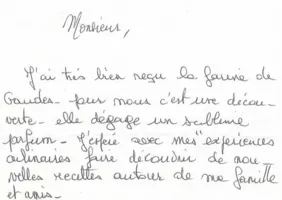 Monsieur,
J'ai très bien reçu la farine de
Gaudes - pour nous c'est une décou-
verte - elle dégage un sublime
parfum - J'espère avec mes "expériences
culinaires faire découvrir de nou-
velles recettes autour de ma famille
et amis -